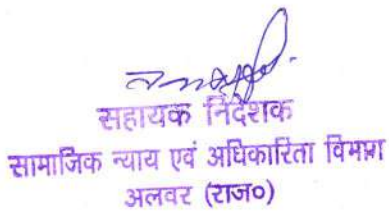 सहायक निदेशक
सामाजिक न्याय एवं अधिकारिता विभाग
अलवर (राज०)